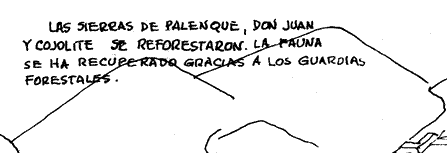 LAS SIERRAS DE PALENQUE, DON JUAN
Y COJOLITE SE REFORESTARON. LA FAUNA
SE HA RECUPERADO GRACIAS A LOS GUARDIAS
FORESTALES.